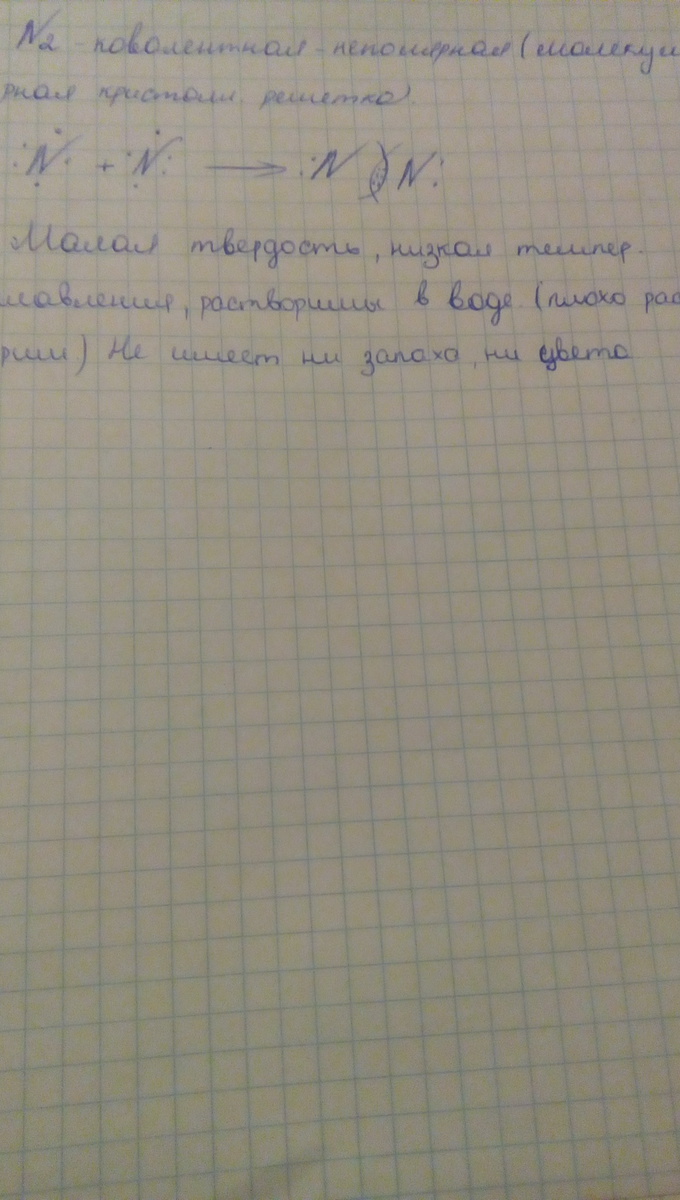 N2 - ковалентная - неполярная (молекул
рная кристалл. решетка).
:N· + :N: → :N N:
Малая твердость, низкая темпер.
лавления, растворимы в воде. (плохо рас
рим) Не имеет ни запаха, ни цвета